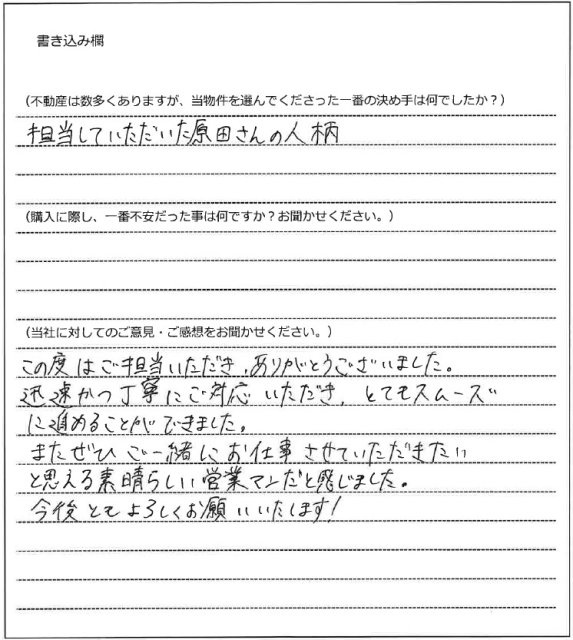 書き込み欄
（不動産は数多くありますが、当物件を選んでくださった一番の決め手は何でしたか？）
担当していただいた原田さんの人柄
（購入に際し、一番不安だった事は何ですか？お聞かせください。）
（当社に対してのご意見・ご感想をお聞かせください。）
この度はご担当いただき、ありがとうございました。
迅速かつ丁寧にご対応いただき、とてもスムーズ
に進めることができました。
またぜひご一緒にお仕事させていただきたい
と思える素晴らしい営業マンだと感じました。
今後ともよろしくお願いいたします！